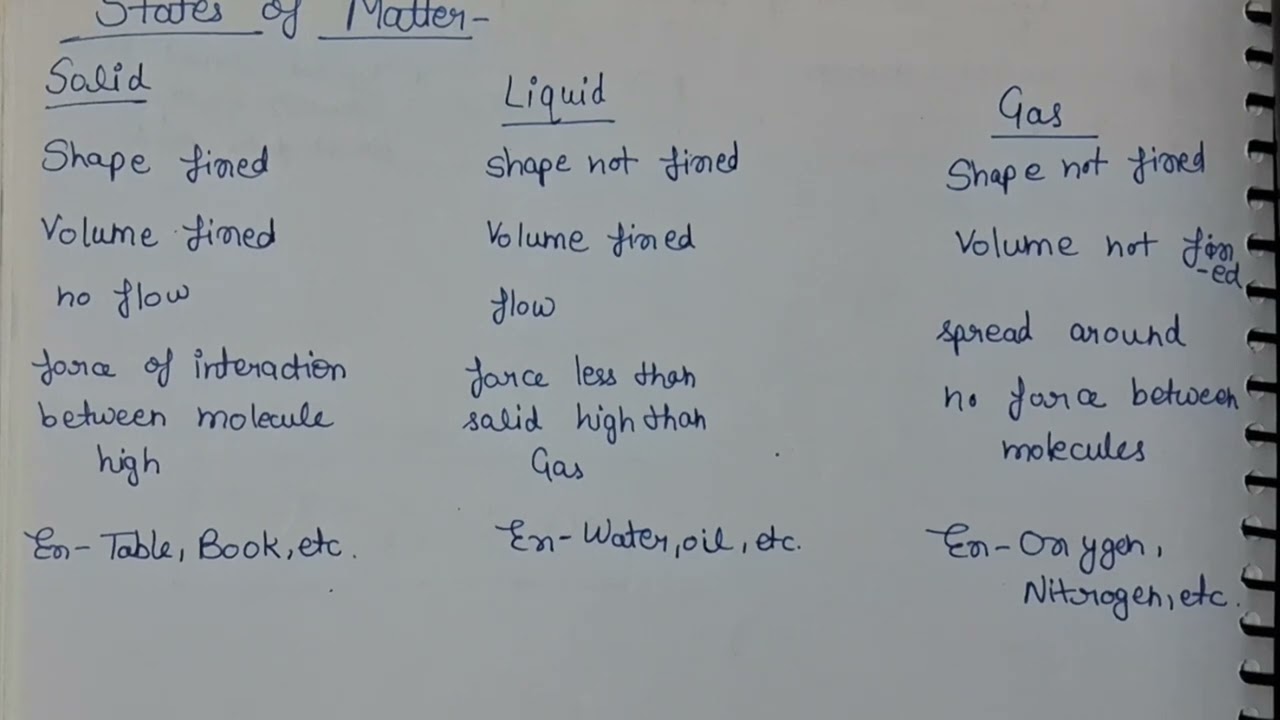 States of Matter-
Solid
Shape fixed
Volume fixed
no flow
force of interaction
between molecule
high
Ex- Table, Book, etc.
Liquid
shape not fixed
Volume fixed
flow
force less than
solid high than
Gas
Ex- Water, oil, etc.
Gas
Shape not fixed
Volume not fix
-ed
spread around
no force between
molecules
Ex- Oxygen,
Nitrogen, etc.